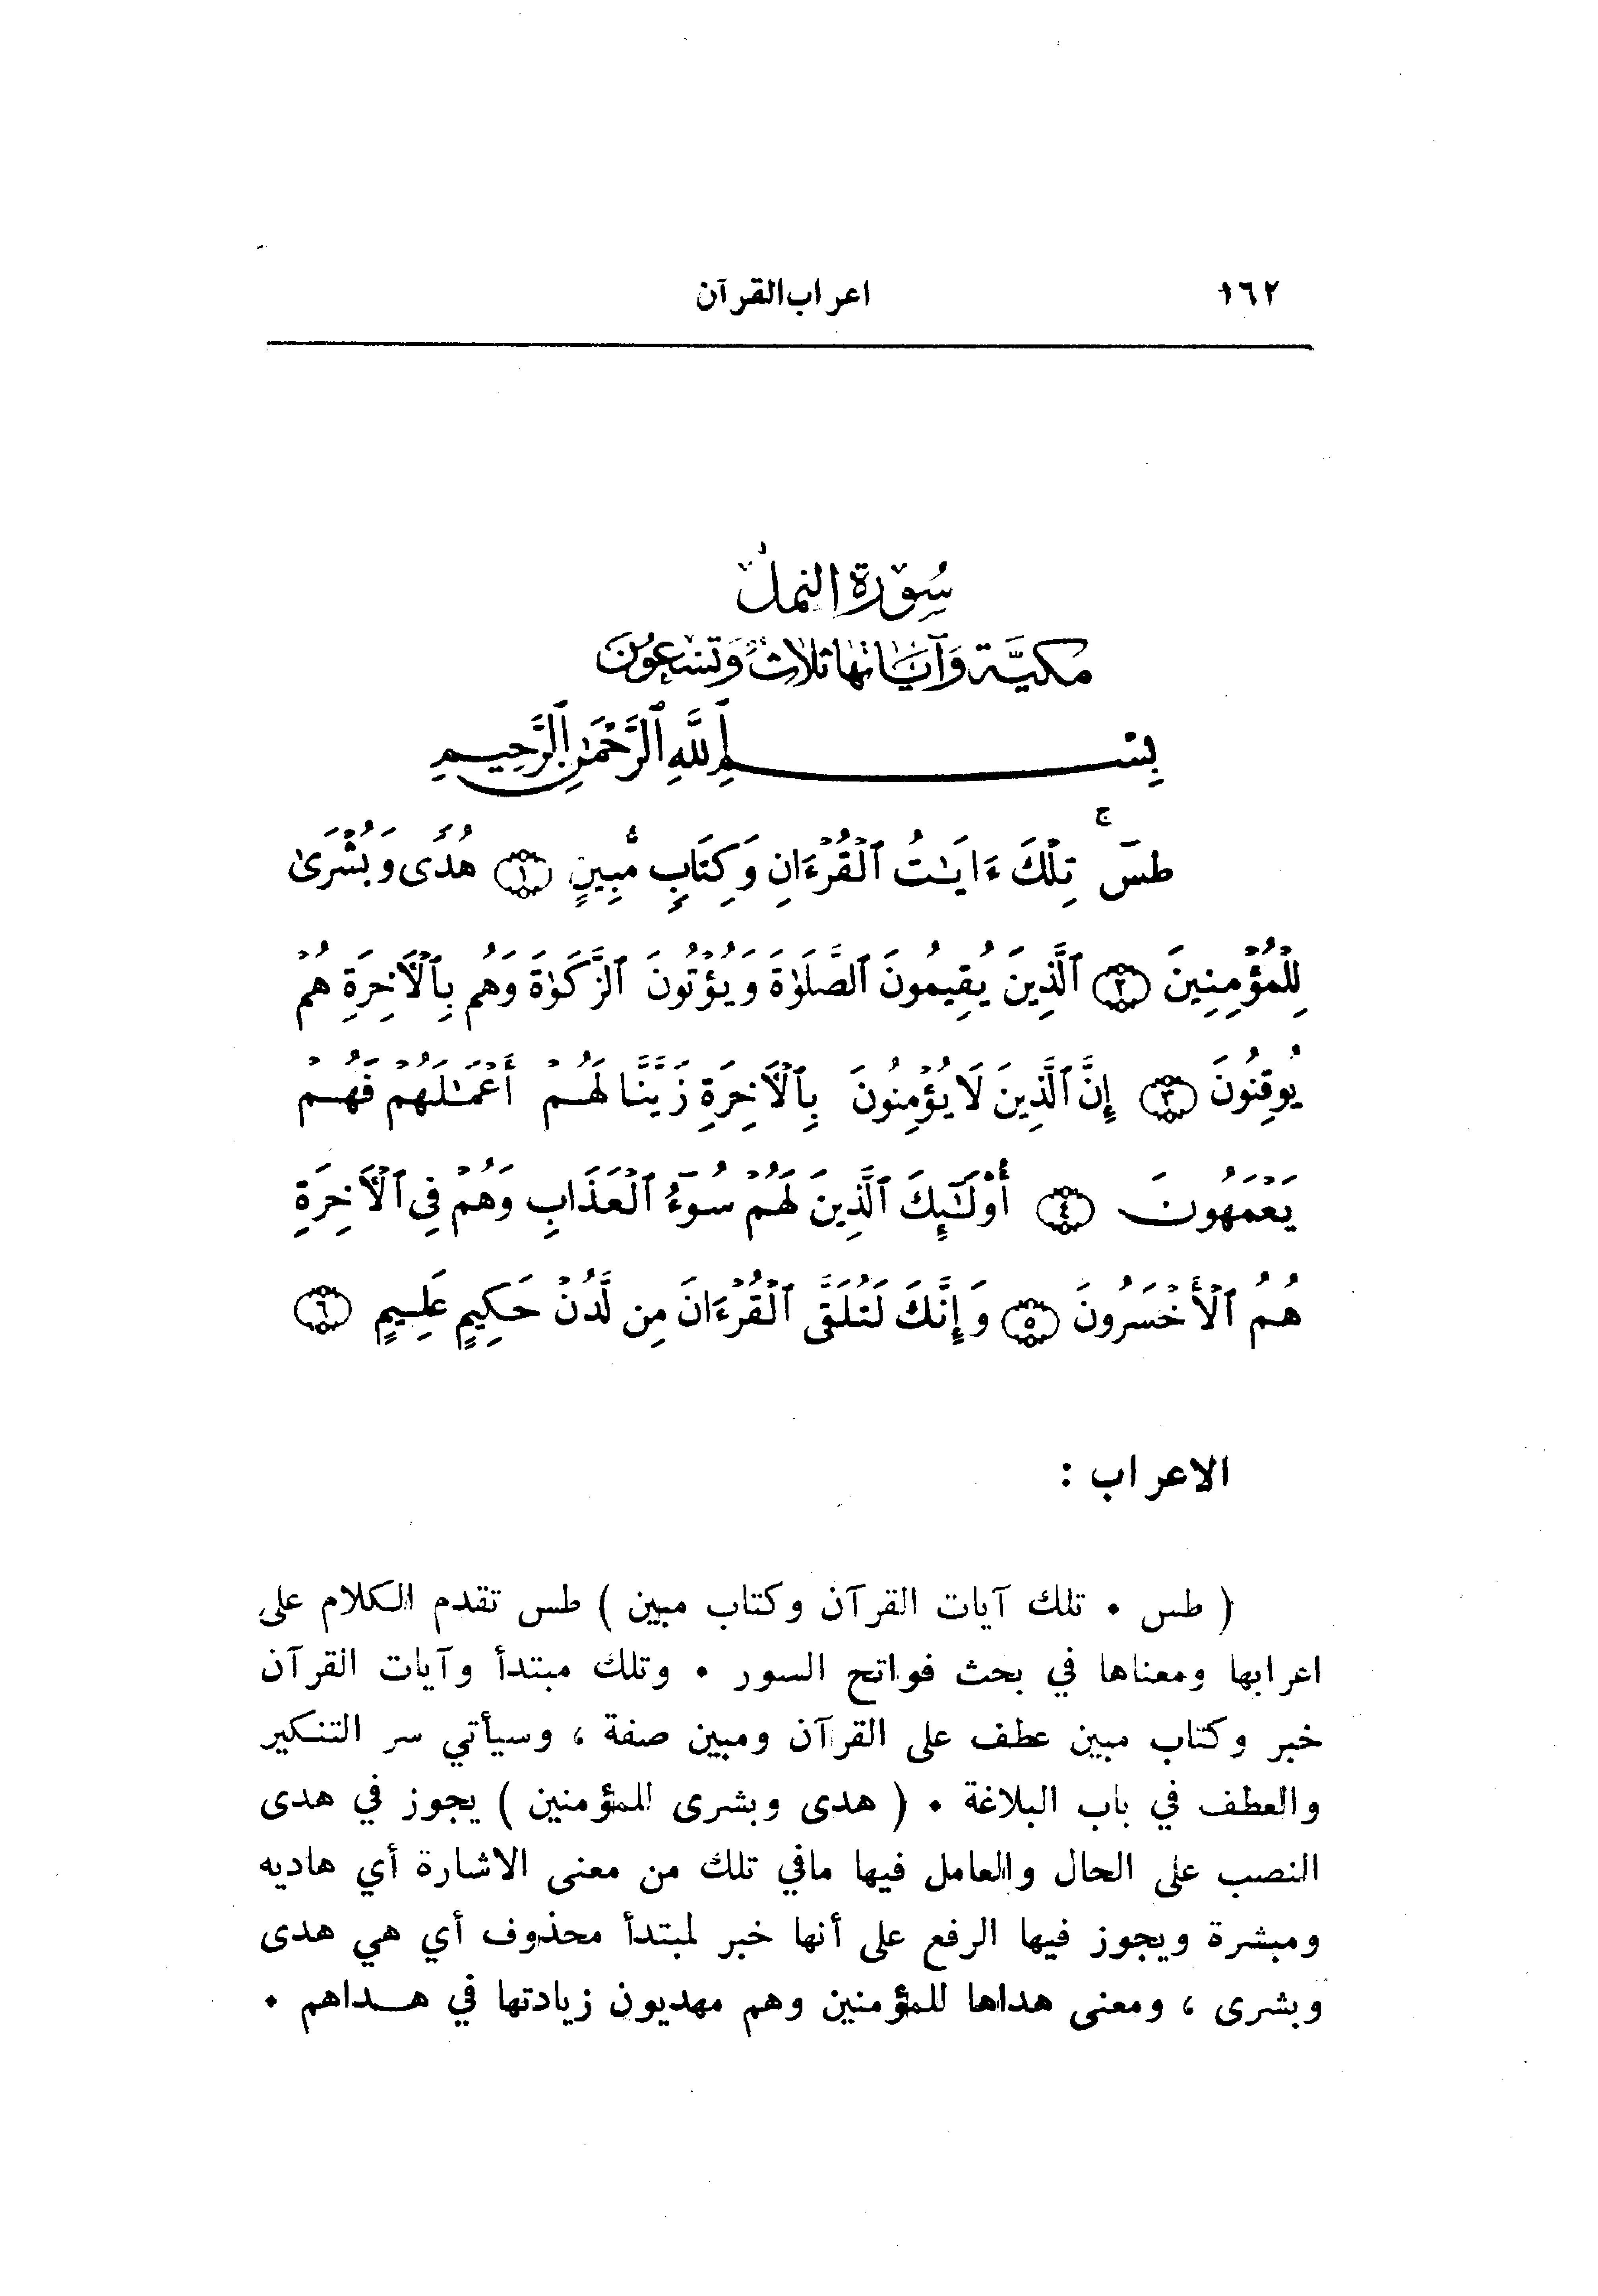 ١٦٢
اعراب القرآن
سُورَة النمل
مكيَّة وَآيَاتها ثلاثٌ وَتسْعُونَ
بِسْمِ ٱللَّهِ ٱلرَّحْمَٰنِ ٱلرَّحِيمِ
طسٓ ۚ تِلْكَ ءَايَٰتُ ٱلْقُرْءَانِ وَكِتَابٍ مُّبِينٍ ١ هُدًى وَبُشْرَىٰ
لِلْمُؤْمِنِينَ ٢ ٱلَّذِينَ يُقِيمُونَ ٱلصَّلَوٰةَ وَيُؤْتُونَ ٱلزَّكَوٰةَ وَهُم بِٱلْأَخِرَةِ هُمْ
يُوقِنُونَ ٣ إِنَّ ٱلَّذِينَ لَا يُؤْمِنُونَ بِٱلْأَخِرَةِ زَيَّنَّا لَهُمْ أَعْمَٰلَهُمْ فَهُمْ
يَعْمَهُونَ ٤ أُوْلَٰٓئِكَ ٱلَّذِينَ لَهُمْ سُوٓءُ ٱلْعَذَابِ وَهُمْ فِى ٱلْأَخِرَةِ
هُمُ ٱلْأَخْسَرُونَ ٥ وَإِنَّكَ لَتُلَقَّى ٱلْقُرْءَانَ مِن لَّدُنْ حَكِيمٍ عَلِيمٍ ٦
الاعراب :
( طس . تلك آيات القرآن وكتاب مبين ) طس تقدم الكلام على
اعرابها ومعناها في بحث فواتح السور . وتلك مبتدأ وآيات القرآن
خبر وكتاب مبين عطف على القرآن ومبين صفة ، وسيأتي سر التنكير
والعطف في باب البلاغة . ( هدى وبشرى للمؤمنين ) يجوز في هدى
النصب على الحال والعامل فيها مافي تلك من معنى الاشارة أي هاديه
ومبشرة ويجوز فيها الرفع على أنها خبر لمبتدأ محذوف أي هي هدى
وبشرى ، ومعنى هداها للمؤمنين وهم مهديون زيادتها في هداهم .